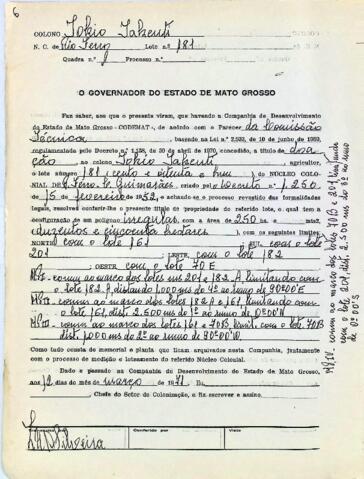 6
COLONO Tokio Takeuti
N. C. de Rio Ferro Lote n.º 181
Quadra n.º Processo n.º
O GOVERNADOR DO ESTADO DE MATO GROSSO
Faz saber, aos que o presente virem, que havendo a Companhia de Desenvolvimento
do Estado de Mato Grosso - CODEMAT-, de acôrdo com o Parecer da Comissão
Técnica, baseado na Lei n.º 2.933, de 10 de junho de 1969,
regulamentado pelo Decreto n.º 1.138, de 30 de abril de 1970, concedido, a título de doa
ção ao colono Tokio Takeuti, agricultor,
o lote número 181 (cento e oitenta e hum) do NÚCLEO COLO-
NIAL DE R. Ferro, C. Guimarães, criado pelo Decreto n.º 1.250,
de 15 de fevereiro 1952, e achando-se o processo revestido das formalidades
legais, resolveu conferir-lhe o presente título de propriedade do referido lote, o qual tem a
desfiguração de um polígono irregular, com a área de 250 ha
duzentos e cincoenta hectares), com os seguintes limites:
NORTE com o lote 161 SUL com o lote
201 LESTE com o lote 182
OESTE com o lote 70 E
comum ao marco dos lotes 201 e 182. A limitando com
o lote 182. A, distando 1.000 ms. do 4º ao rumo de 90º00'E
comum ao marco dos lotes 182 A e 161, limitando com
o lote 161, dist. 2.500 ms do 1º ao rumo de 0º00'N
comum ao marco dos lotes 161 e 70B, limit. com o lote 70B
dist. 1.000 ms do 2º ao rumo de 90º00'W
comum ao marco dos lotes 70B e 201 limitando
com o lote 201, dist. 2.500 ms do 3º ao rumo
de 0º00'S
Como tudo consta do memorial e planta que ficam arquivados nesta Companhia, juntamente
com o processo de medição e loteamento do referido Núcleo Colonial.
Dado e passado na Companhia de Desenvolvimento do Estado de Mato Grosso,
aos 12 dias do mês de março de 1971. Eu,
Chefe do Setor de Colonização, fiz escrever e assino.
Conferido por Visto